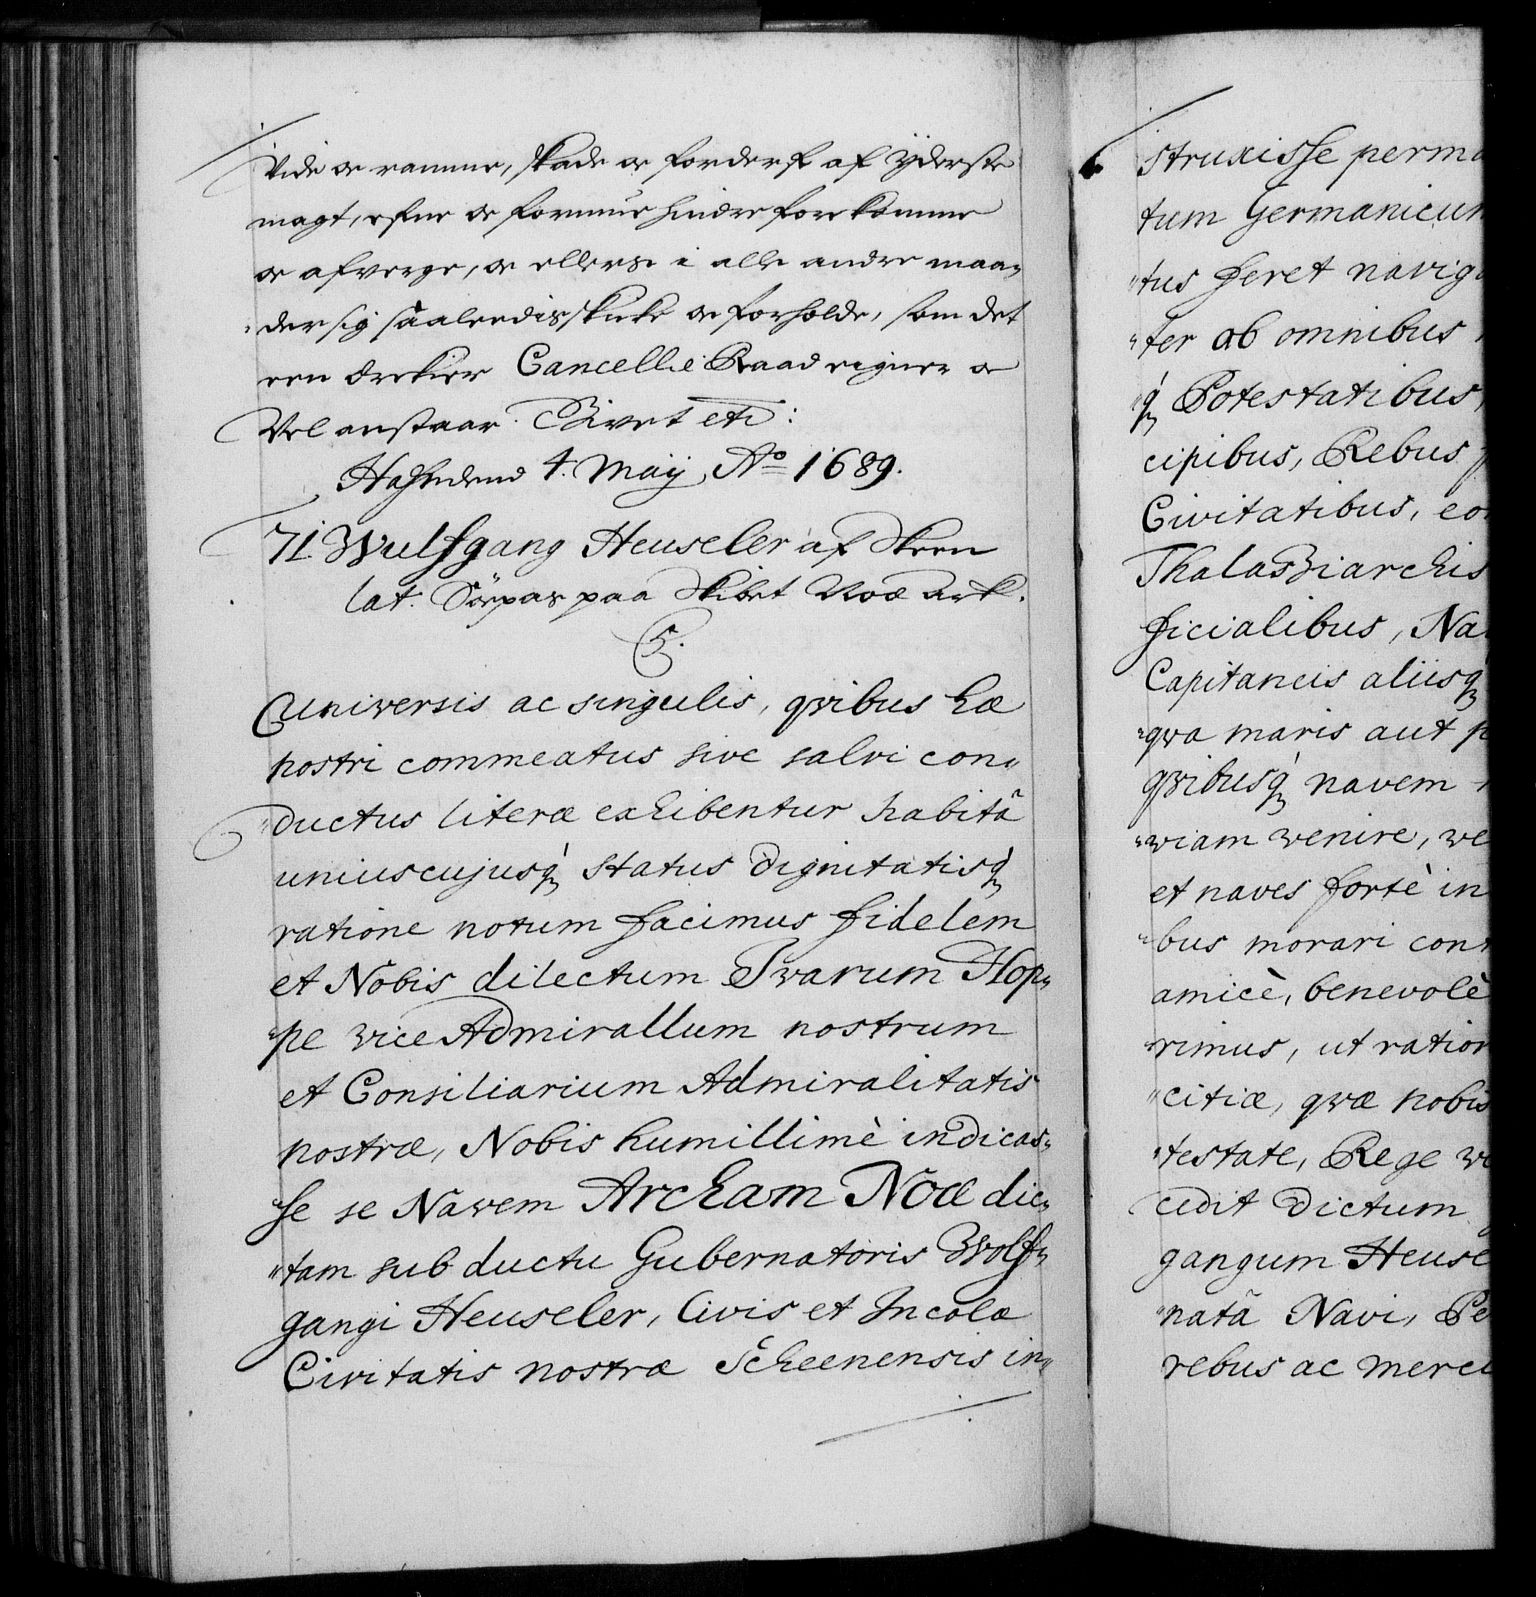 vide og ramme, skade og forderf af ÿderste
magt, efne og formue hindre forekomme
og afverge, og ellers i alle andre maa„
„der sig saaledis skicke og forholde, som det
een ærekier Cancellie Raad eigner og
Vel anstaar. Givet etc:
Hafniæ d. 4. Maÿ Aº 1689.
71. Wulfgang Heuseler af Skeen
lat. Söepas paa Skibet Noæ Ark.
C5.
Universis ac singulis, qvibus hæ
nostri commeatus sive salvi con„
„ductus literæ exhibentur habitâ
uniuscujusq́ status dignitatisq́
ratione notum facimus fidelem
et Nobis dilectum Ivarum Hop„
„pe vice Admirallum nostrum
et Consiliarium Admiralitatis
nostræ, Nobis humillimè indicas„
se se Navem Archam Noæ dic„
„tam sub ductu Gubernatoris Wolf„
gangi Heuseler, Civis et Incolæ
Civitatis nostræ Scheenensis in„
struxisse perma
tum Germanicum
„tus fieret naviga
„ter ab omnibus
„q́ Potestatibus,
cipibus, Rebus p
Civitatibus, eo
Thalassiarchis
ficialibus, Na
Capitaneis aliisq́
„qva maris aut p
qvibusq́ navem
„viam venire, ve
et naves fortè in
„bus morari con
amicè, benevolè
„rimus, ut ration
„citiæ, qvæ nobis
„testate, Rege ve
cedit dictum
gangum Heuse
„natâ Navi, Pe
rebus ac merci